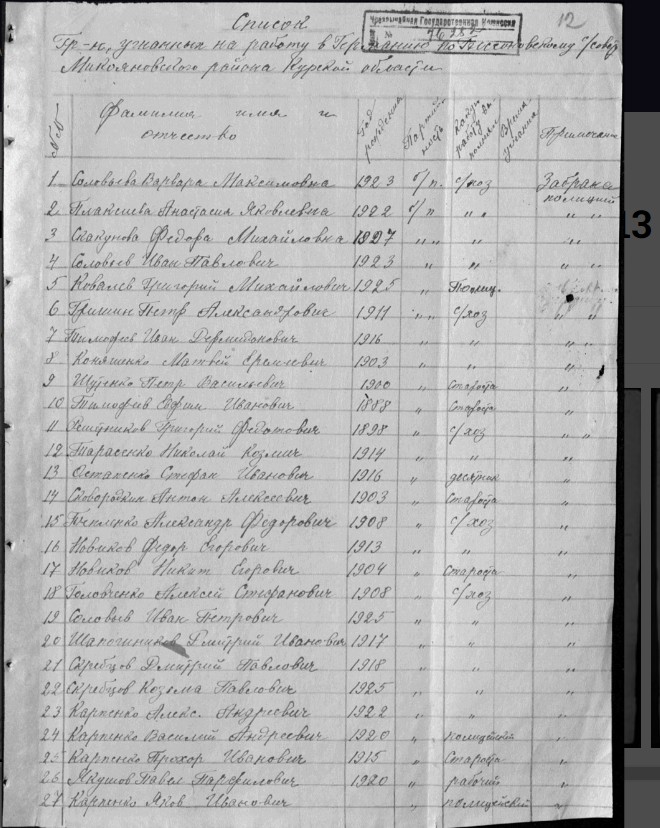 Список
Чрезвычайная Государственная Комиссия
№
12
Гр-н, угнанных на работу в Германию по с/совету
Микояновского района Курской области
№№
Фамилия имя и отчество
Год рождения
Партийность
Какую работу выполнял
Время угнания
Примечание
1 Соловьева Варвара Максимовна 1923 б/п. с/хоз Забрана полицией
2 Плаксива Анастасия Яковлевна 1922 б/п " " " "
3 Скакунова Федора Михайловна 1897 " " " " "
4 Соловьев Иван Павлович 1923 " " " "
5 Ковалев Григорий Михайлович 1925 " Полиц.
6 Гришин Петр Александрович 1911 " " с/хоз " "
7 Тимофеев Иван 1916 " " " "
8 Коняшенко Матвей Еремеевич 1903 " " "
9 Шутенко Петр Васильевич 1900 " Староста "
10 Тимофеев Ефим Иванович 1888 " Староста "
11 Решетников Григорий Федотович 1898 " с/хоз " "
12 Тарасенко Николай Козмич 1914 " " "
13 Остапенко Стефан Иванович 1916 " десятник "
14 Сковородкин Антон Алексеевич 1903 " Староста "
15 Александр Федорович 1908 " с/хоз "
16 Новиков Федор Егорович 1913 " " "
17 Новиков Никит Егорович 1904 " Староста "
18 Головченко Алексей Стефанович 1908 " с/хоз "
19 Соловьев Иван Петрович 1925 " " "
20 Шапошников Дмитрий Иванович 1917 " " "
21 Скребцов Дмитрий Павлович 1918 " " "
22 Скребцов Козьма Павлович 1925 " " "
23 Карпенко Алекс. Андреевич 1922 " " "
24 Карпенко Василий Андреевич 1920 " полицейский "
25 Карпенко Прохор Иванович 1915 " Староста "
26 Якушов Павел Парфилович 1920 " рабочий "
27 Карпенко Яков Иванович " полицейский "
13